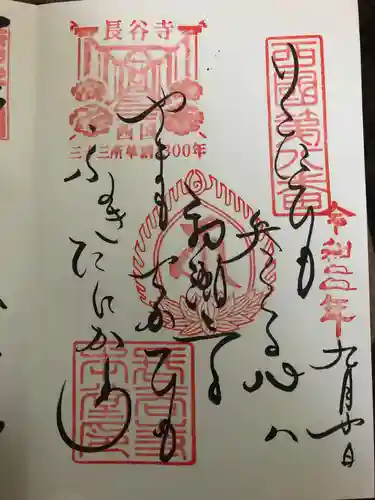 西國第八番
いくたひも
令和三年
九月廿日
まいる心ハ
初瀬てら
やまもちかひも
ふかきたにかわ
長谷寺
西国
三十三所草創1300年